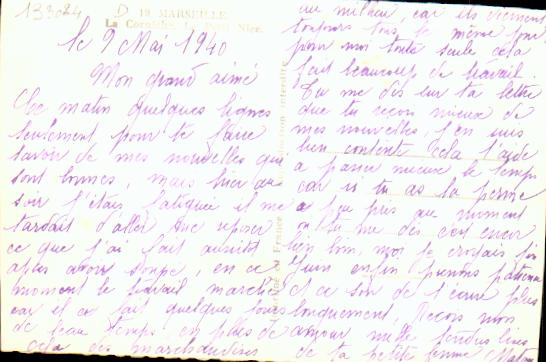 133024
D 19 MARSEILLE.
La Corniche. Le Petit Nice.
le 9 Mai 1940
Mon grand aimé
Ce matin quelques lignes
seulement pour te faire
savoir de mes nouvelles qui
sont bonnes, mais hier au
soir j'étais fatiguée et me
tardait d'aller me reposer
ce que j'ai fait aussitôt
après avoir soupé, en ce
moment le travail marche
car il a fait quelques jours
de beau temps, en plus de
cela des marchandises
au milieu, car ils viennent
toujours tous le même jour
pour moi toute seule cela
fait beaucoup de travail.
Tu me dis sur ta lettre
que tu reçois mieux de
mes nouvelles, j'en suis
bien contente cela t'aide
a passer mieux le temps
car si tu as la perme
a peu près au moment
où tu me dis c'est encore
bien loin, moi je croyais fin
Juin enfin prenons patience
et ce soir de t'écrire plus
longuement, Reçois mon
amour mille tendres bises
de ta petite femme